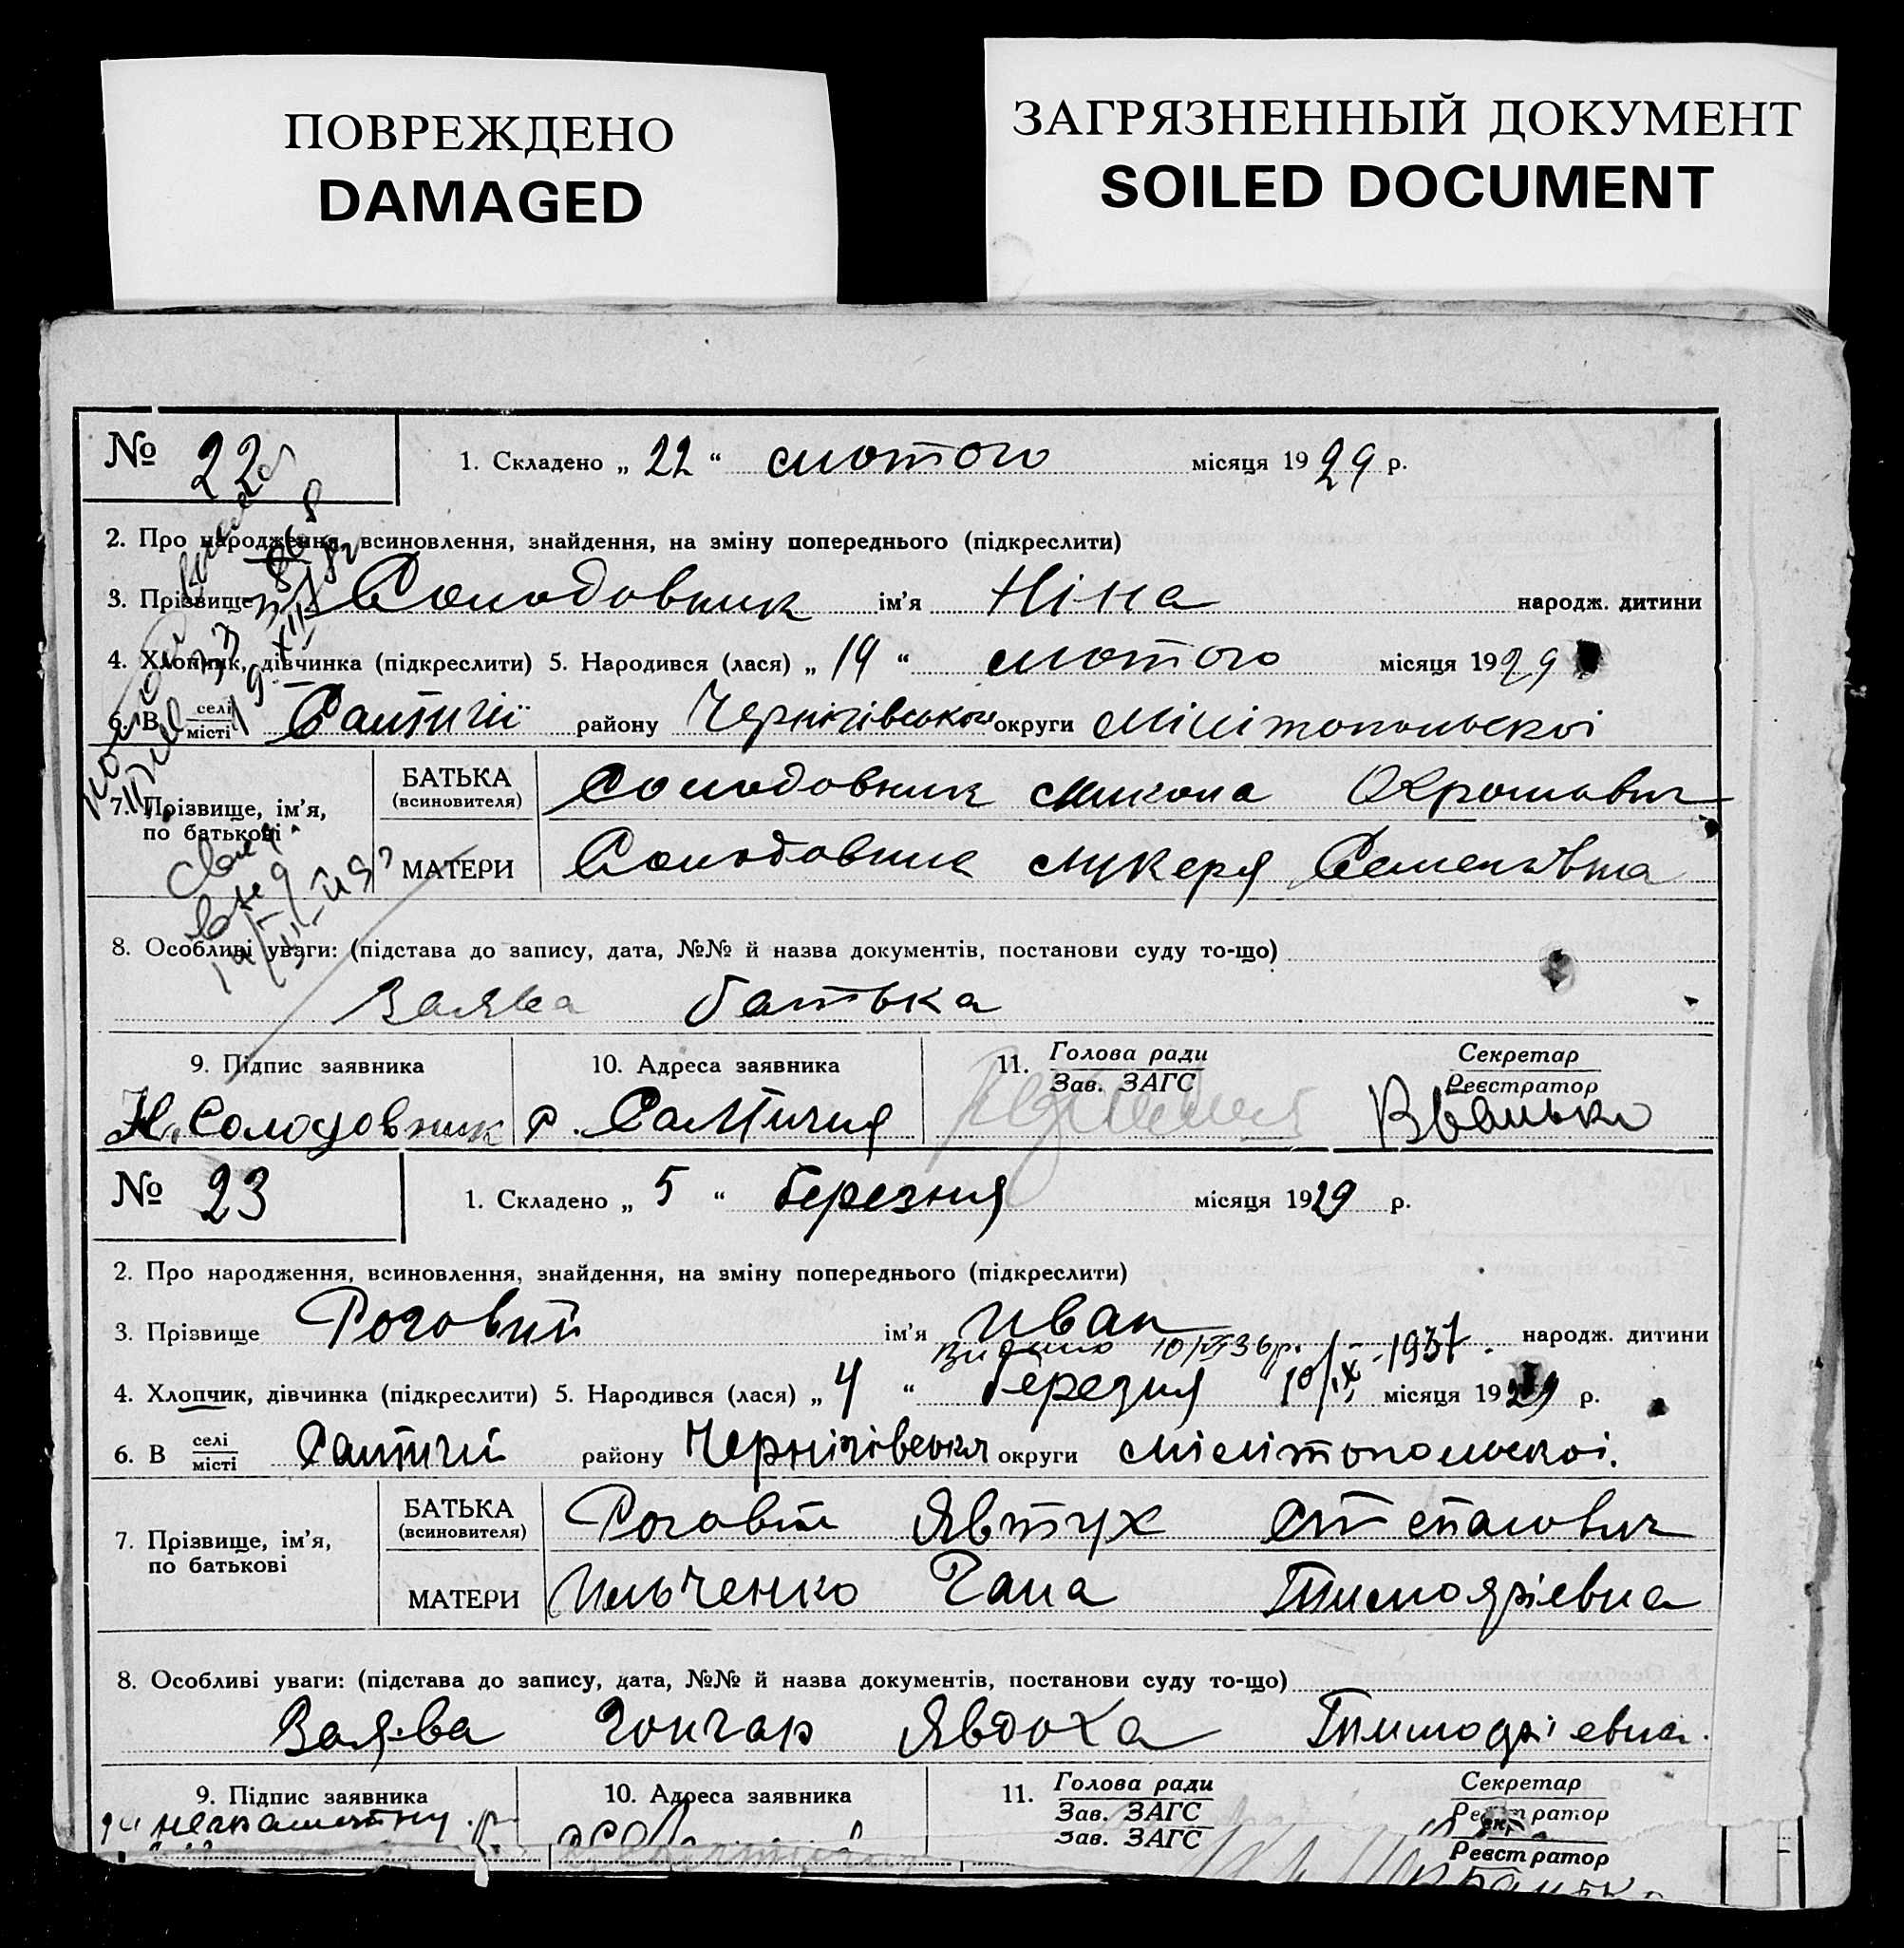 ПОВРЕЖДЕНО
DAMAGED
ЗАГРЯЗНЕННЫЙ ДОКУМЕНТ
SOILED DOCUMENT
№ 22
1. Складено „ 22 “ лютого місяця 1929 р.
2. Про народження, всиновлення, знайдення, на зміну попереднього (підкреслити)
3. Прізвище Солодовник ім’я Ніна народж. дитини
4. Хлопчик, дівчинка (підкреслити) 5. Народився (лася) „ 19 “ лютого місяця 1929
6. В селі місті Салтичії району Чернігівського округи Мілітопольскоі
7. Прізвище, ім’я, по батькові
БАТЬКА (всиновителя) Солодовник Микола
МАТЕРИ Солодовник Лукеря Семенівна
8. Особливі уваги: (підстава до запису, дата, №№ й назва документів, постанови суду то-що)
Заява батька
9. Підпис заявника 10. Адреса заявника 11. Голова ради Зав. ЗАГС Секретар Реєстратор
Н. Солодовник с. Салтичия
№ 23
1. Складено „ 5 “ березня місяця 1929 р.
2. Про народження, всиновлення, знайдення, на зміну попереднього (підкреслити)
3. Прізвище Роговий ім’я Иван народж. дитини
Видано 10/VI 36р. 10/IX-1937.
4. Хлопчик, дівчинка (підкреслити) 5. Народився (лася) „ 4 “ березня місяця 1929 р.
6. В селі місті Салтичії району Чернігівськ округи Мілітопольскоі.
7. Прізвище, ім’я, по батькові
БАТЬКА (всиновителя) Роговий Явтух Степанович
МАТЕРИ Ильченко Гана Тимофіевна
8. Особливі уваги: (підстава до запису, дата, №№ й назва документів, постанови суду то-що)
Заява Гончар Явдоха Тимофіевна.
9. Підпис заявника 10. Адреса заявника 11. Голова ради Зав. ЗАГС Секретар Реєстратор
Зав. ЗАГС Реєстратор